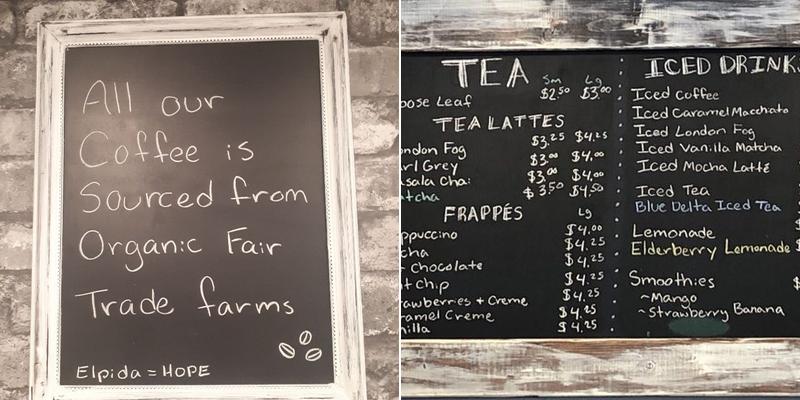 All our
Coffee is
Sourced from
Organic Fair
Trade farms
Elpida = HOPE
TEA Sm Lg
Leaf $2.50 $3.00
TEA LATTES
Fog $3.25 $4.25
Grey $3.00 $4.00
Chai $3.00 $4.00
$3.50 $4.50
FRAPPÉS Lg
$4.00
$4.25
Chocolate $4.25
chip $4.25
+ Creme $4.25
Creme $4.25
$4.25
ICED DRINKS
Iced Coffee
Iced Caramel Macchiato
Iced London Fog
Iced Vanilla Matcha
Iced Mocha Latté
Iced Tea
Blue Delta Iced Tea
Lemonade
Elderberry Lemonade
Smoothies
~Mango
~Strawberry Banana